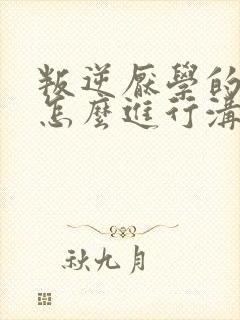 叛逆厭學的
怎麼進行溝
秋九月